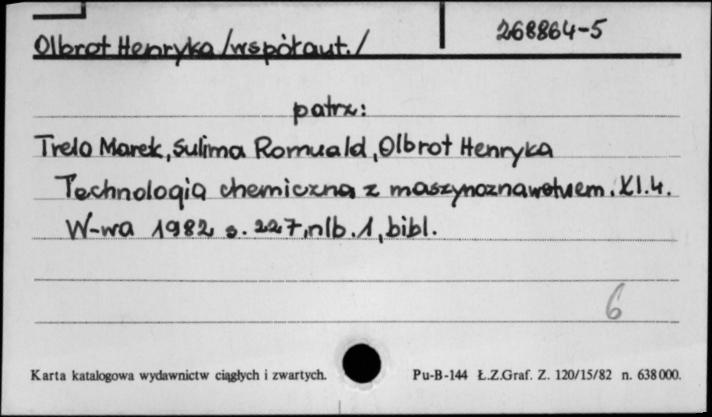 268864-5
Olbrot Henryka /współaut./
patrz:
Trelo Marek, Sulima Romuald, Olbrot Henryka
Technologia chemiczna z maszynoznawstwem. Kl.4.
W-wa 1982 s. 227, nlb. 1, bibl.
6
Karta katalogowa wydawnictw ciągłych i zwartych. Pu-B-144 Ł.Z.Graf. Z. 120/15/82 n. 638000.